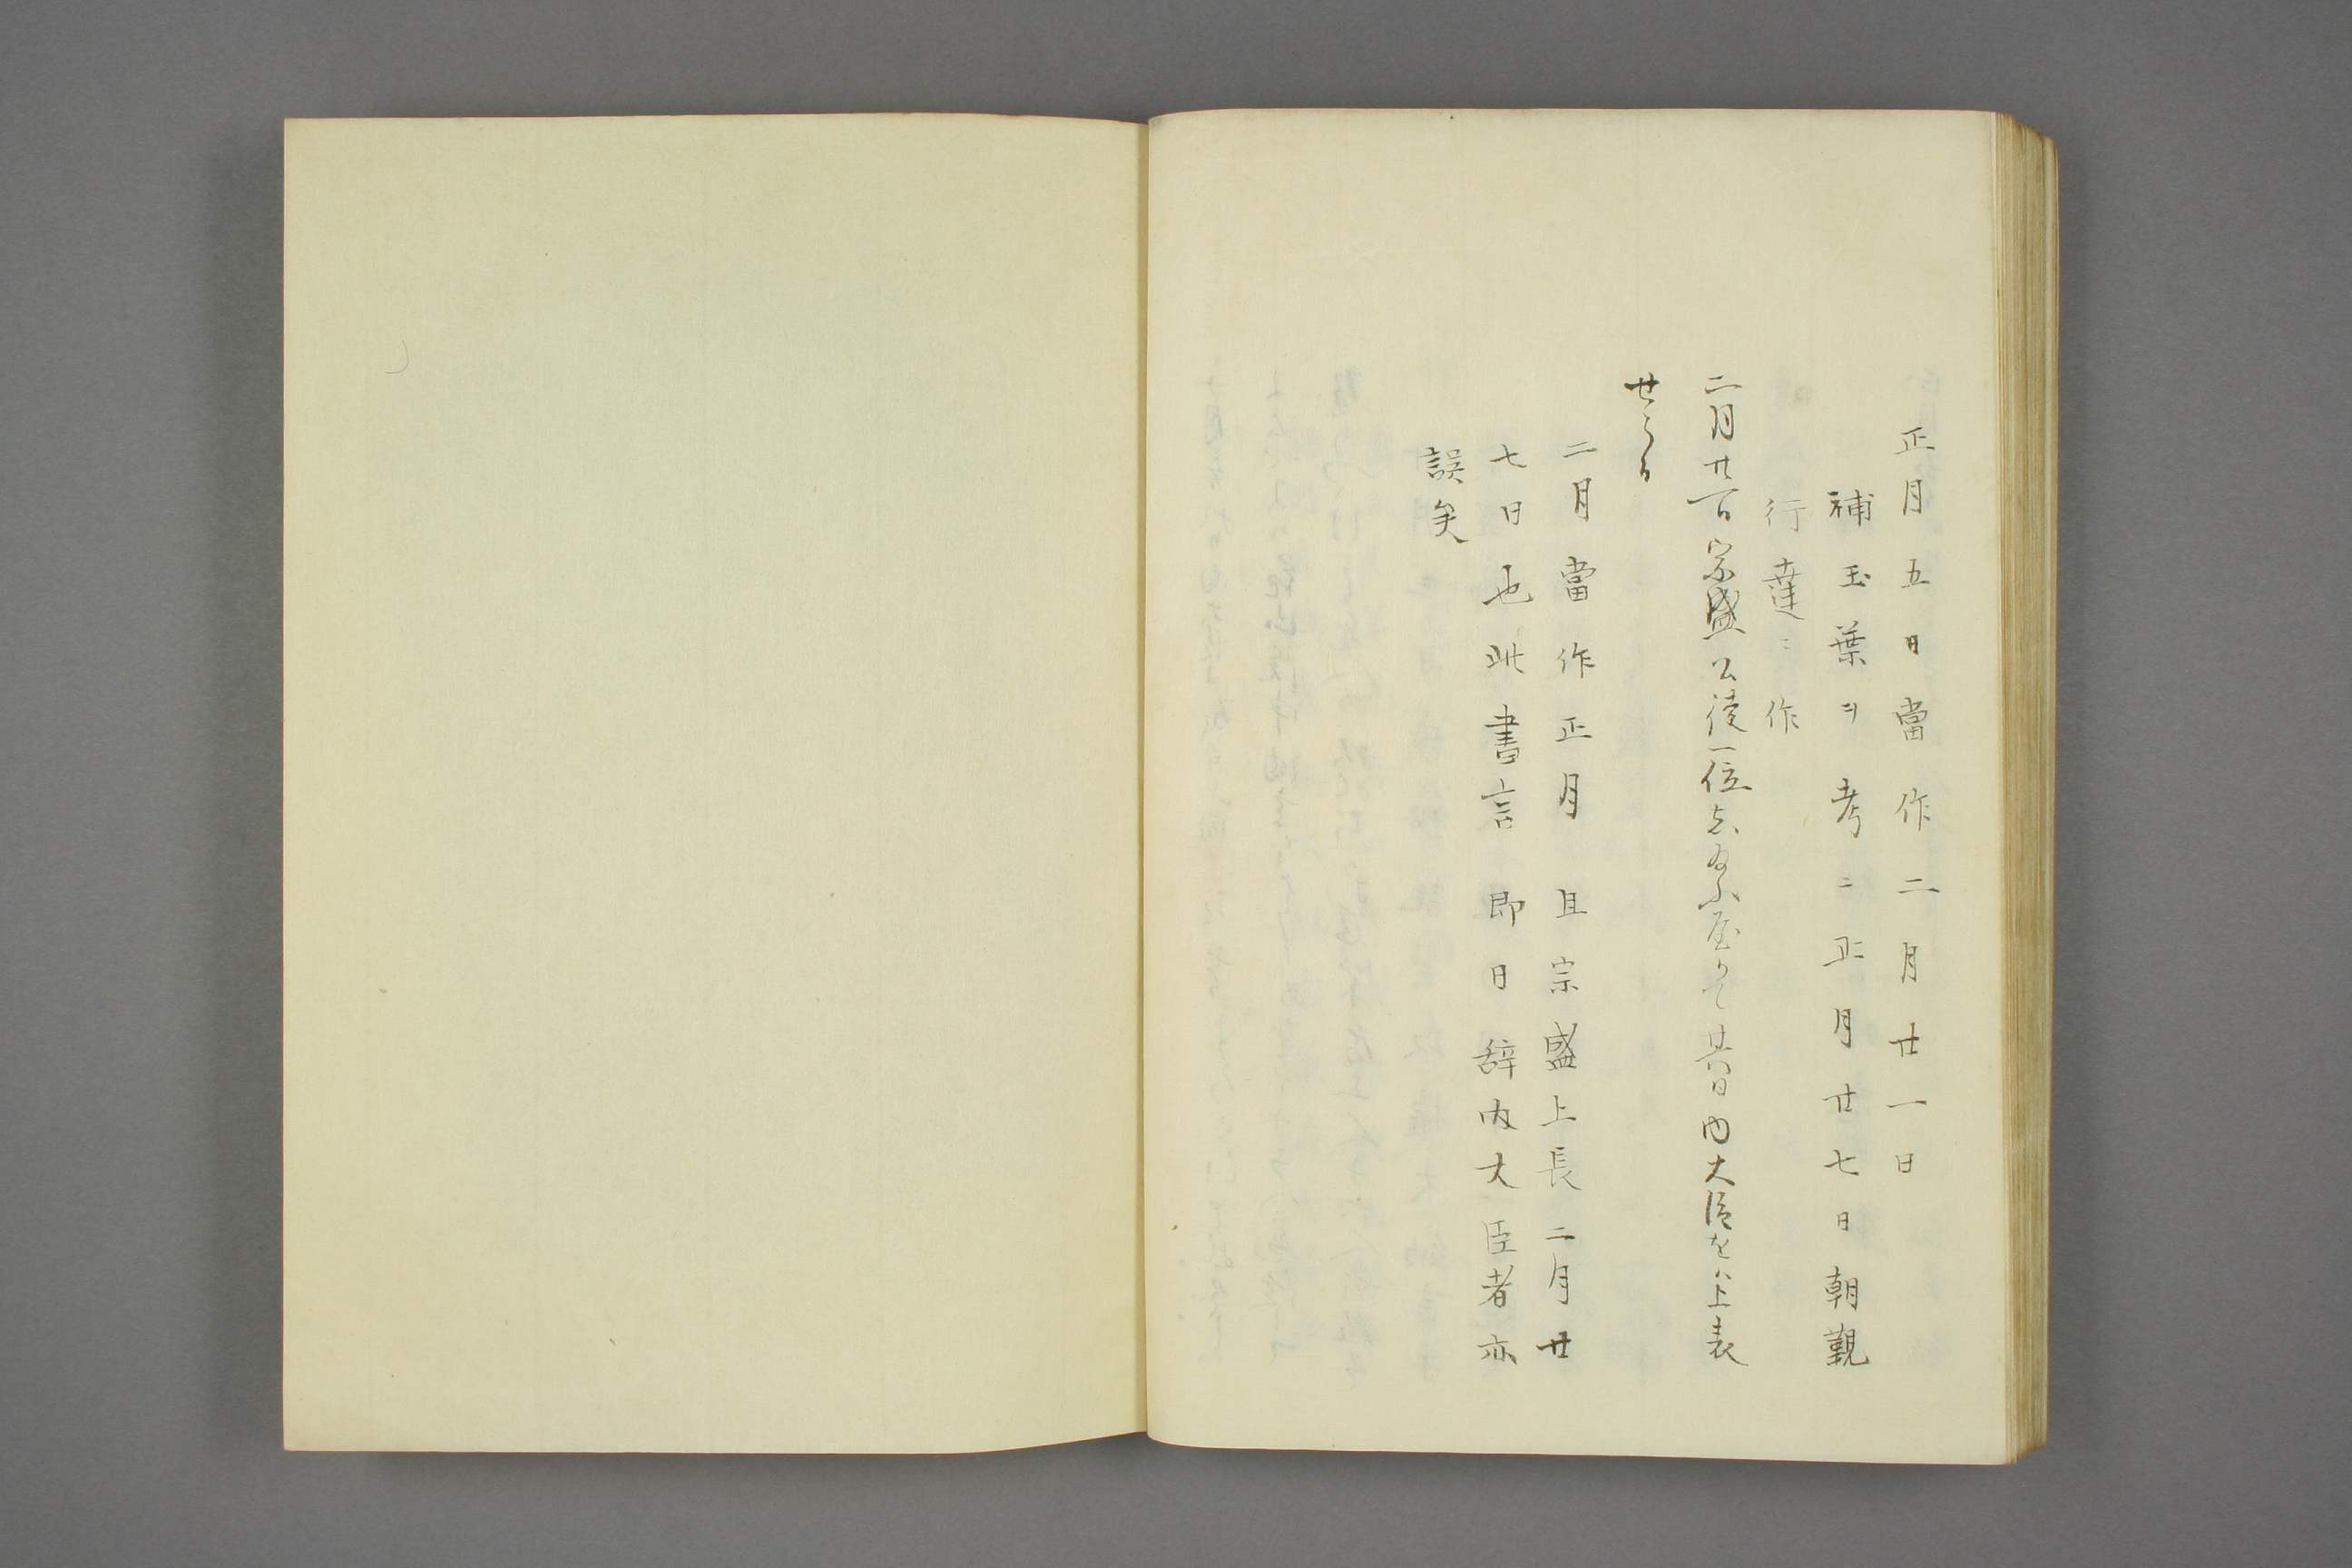 正月五日當作二月廿一日
補玉葉ヲ考ニ正月廿七日朝覲
行達ニ作
二月廿一日宗盛公従一位あかり給て其日内大臣をは上表
せらる
二月當作正月且宗盛上長二月廿
七日也此書言即日辞内大臣者亦
誤矣